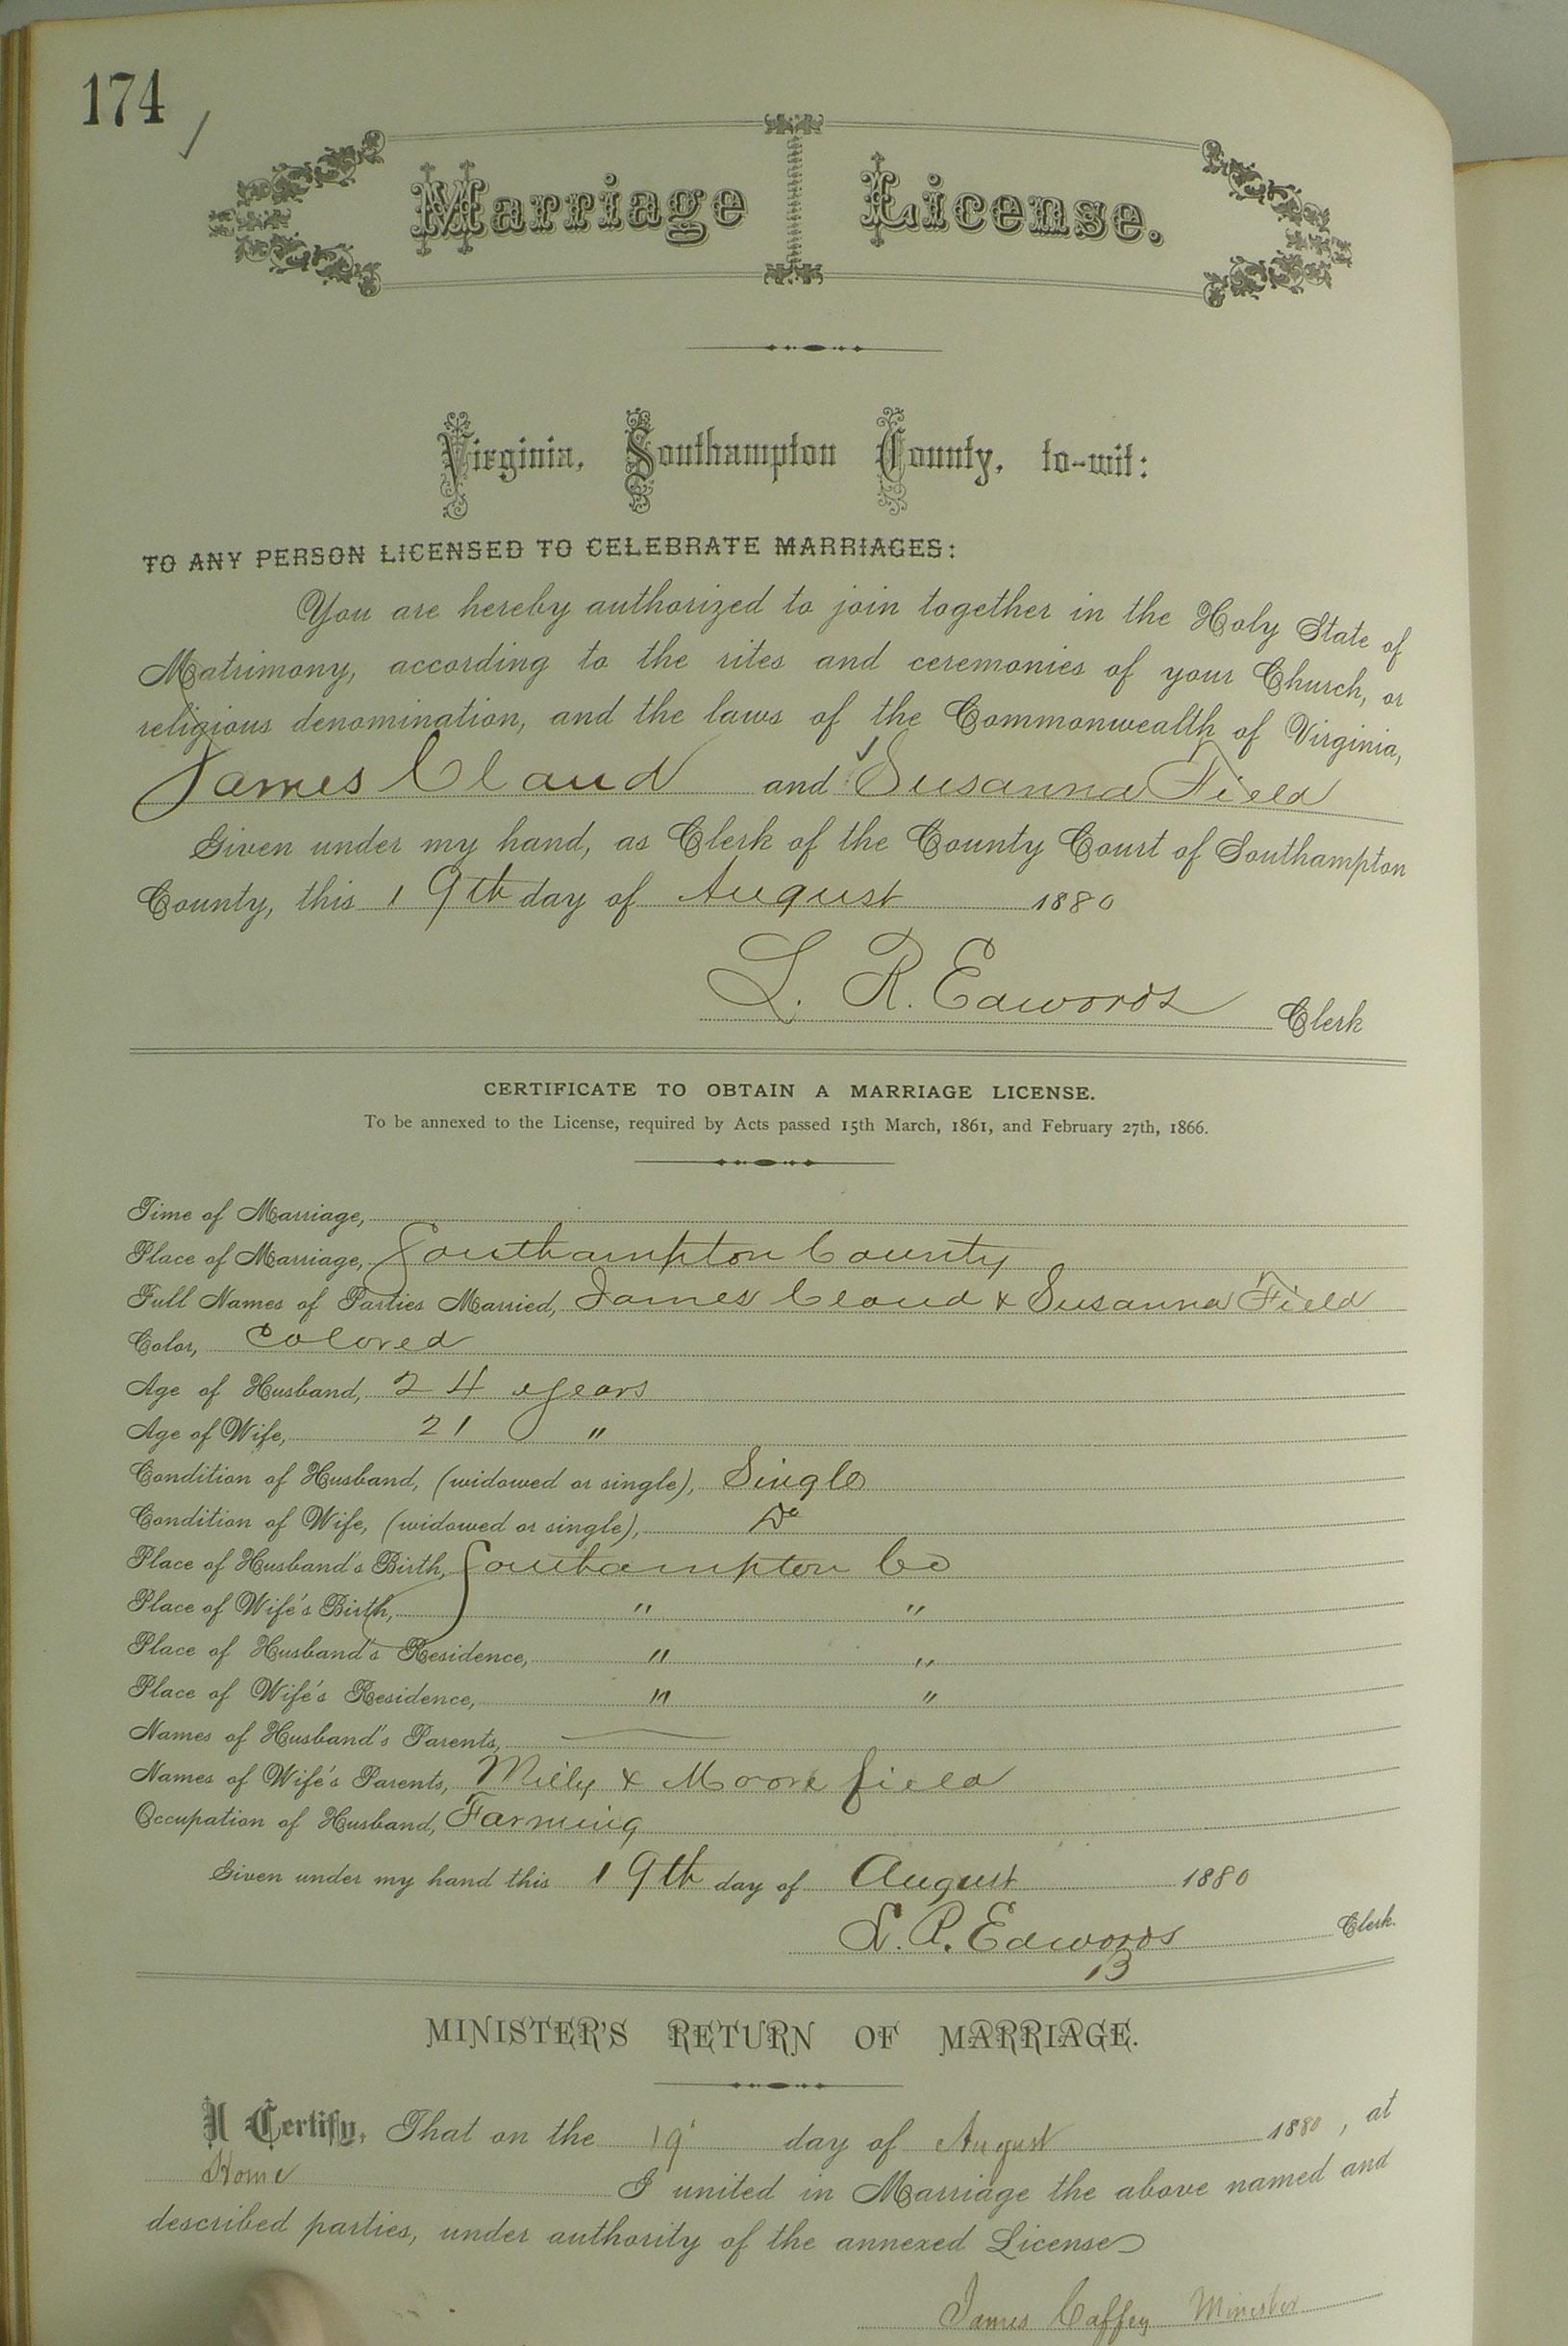 174
Marriage License.
Virginia, Southampton County, to-wit:
TO ANY PERSON LICENSED TO CELEBRATE MARRIAGES:
You are hereby authorized to join together in the Holy State of
Matrimony, according to the rites and ceremonies of your Church, or
religious denomination, and the laws of the Commonwealth of Virginia,
James Claud and Susanna Field
Given under my hand, as Clerk of the County Court of Southampton
County, this 19th day of August 1880
L. R. Edwards Clerk
CERTIFICATE TO OBTAIN A MARRIAGE LICENSE.
To be annexed to the License, required by Acts passed 15th March, 1861, and February 27th, 1866.
Time of Marriage,
Place of Marriage, Southampton County
Full Names of Parties Married, James Claud & Susanna Field
Color, Colored
Age of Husband, 24 years
Age of Wife, 21 "
Condition of Husband, (widowed or single), Single
Condition of Wife, (widowed or single), Do
Place of Husband's Birth, Southampton Co
Place of Wife's Birth, " "
Place of Husband's Residence, " "
Place of Wife's Residence, " "
Names of Husband's Parents, —
Names of Wife's Parents, Milly & Moore field
Occupation of Husband, Farming
Given under my hand this 19th day of August 1880
L. R. Edwards Clerk.
MINISTER'S RETURN OF MARRIAGE.
I Certify, That on the 19 day of August 1880, at
Home I united in Marriage the above named and
described parties, under authority of the annexed License
James Caffey Minister